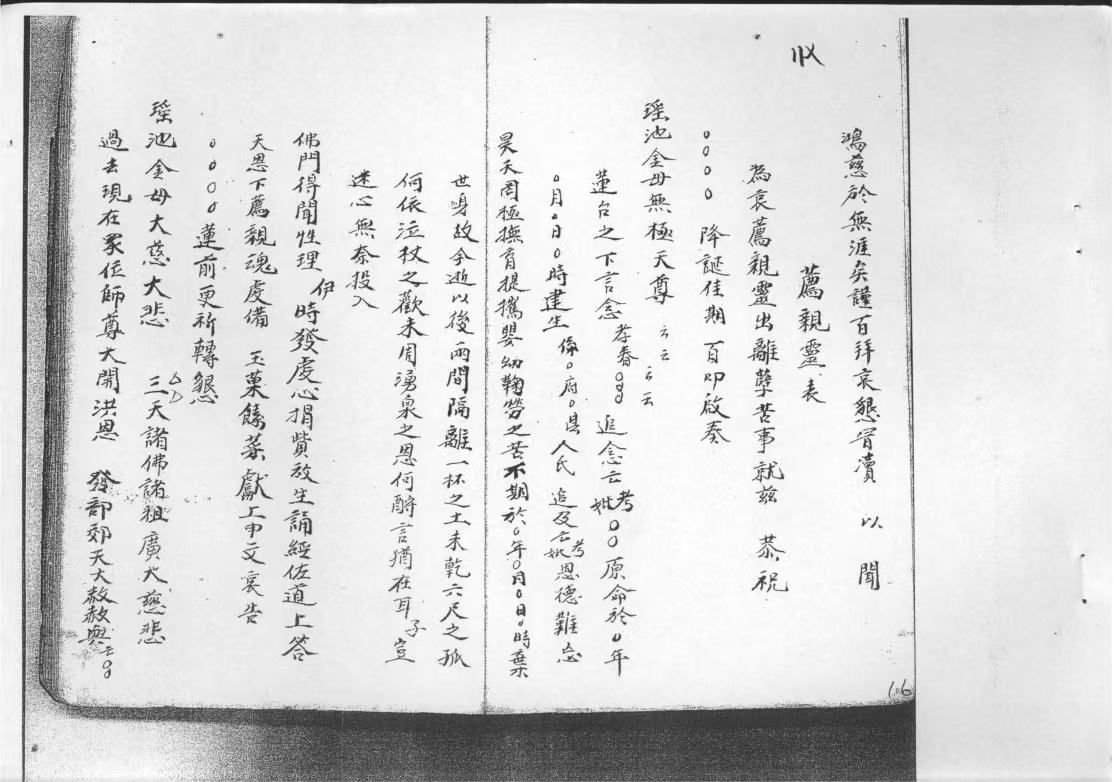 鴻慈於無涯矣謹百拜哀懇冐瀆　以　聞
薦親靈表
為哀薦親靈出離孽苦事就兹　恭祝
○○○○　降誕佳期　百叩啟奏
瑤池金母無極天尊　云云云云
蓮台之下言念　孝眷○○○　追念亡考妣○○原命於○年
○月○日○時建生　係○府○县人氏　追及亡考妣恩德難忘
昊天罔極撫育提携嬰幼鞠勞之苦不期於○年○月○日○時棄
世嗚故今逝以後兩間隔離一杯之土未乾六尺之孤
何依泣杖之歡未周湧泉之恩何酧言猶在耳子豈
迷心無奈投入
佛門得聞性理　伊時發虔心捐貲放生誦經佐道上答
天恩下薦親魂虔備　玉菓餚菜獻上申文哀告
○○○○蓮前更祈轉懇
瑤池金母大慈大悲　三天諸佛諸祖廣大慈悲
過去現在眾位師尊大開洪恩　發部郊天大赦赦與亡○○
16